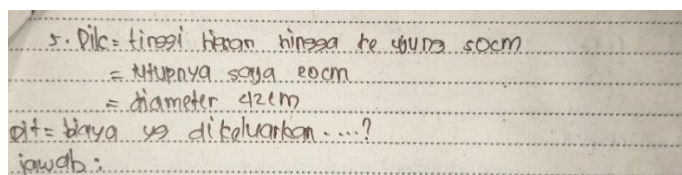 5. Dik = tinggi heran hingga ke ujung 50cm
= tutupnya saja 20cm
= diameter 42cm
Dit = biaya yg dikeluarkan....?
jawab :